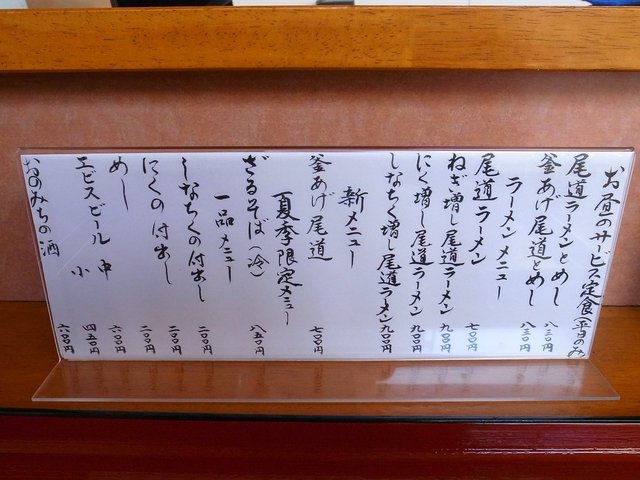 お昼のサービス定食(平日のみ)
尾道ラーメンとめし 八三〇円
釜あげ尾道とめし 八三〇円
ラーメンメニュー
尾道ラーメン 七〇〇円
ねぎ増し尾道ラーメン 九〇〇円
にく増し尾道ラーメン 九〇〇円
しなちく増し尾道ラーメン 九〇〇円
新メニュー
釜あげ尾道 七〇〇円
夏季限定メニュー
ざるそば(冷) 八五〇円
一品メニュー
しなちくの付出し 二〇〇円
にくの付出し 二〇〇円
めし 二〇〇円
エビスビール 中 六〇〇円
小 四五〇円
おのみちの酒 六〇〇円